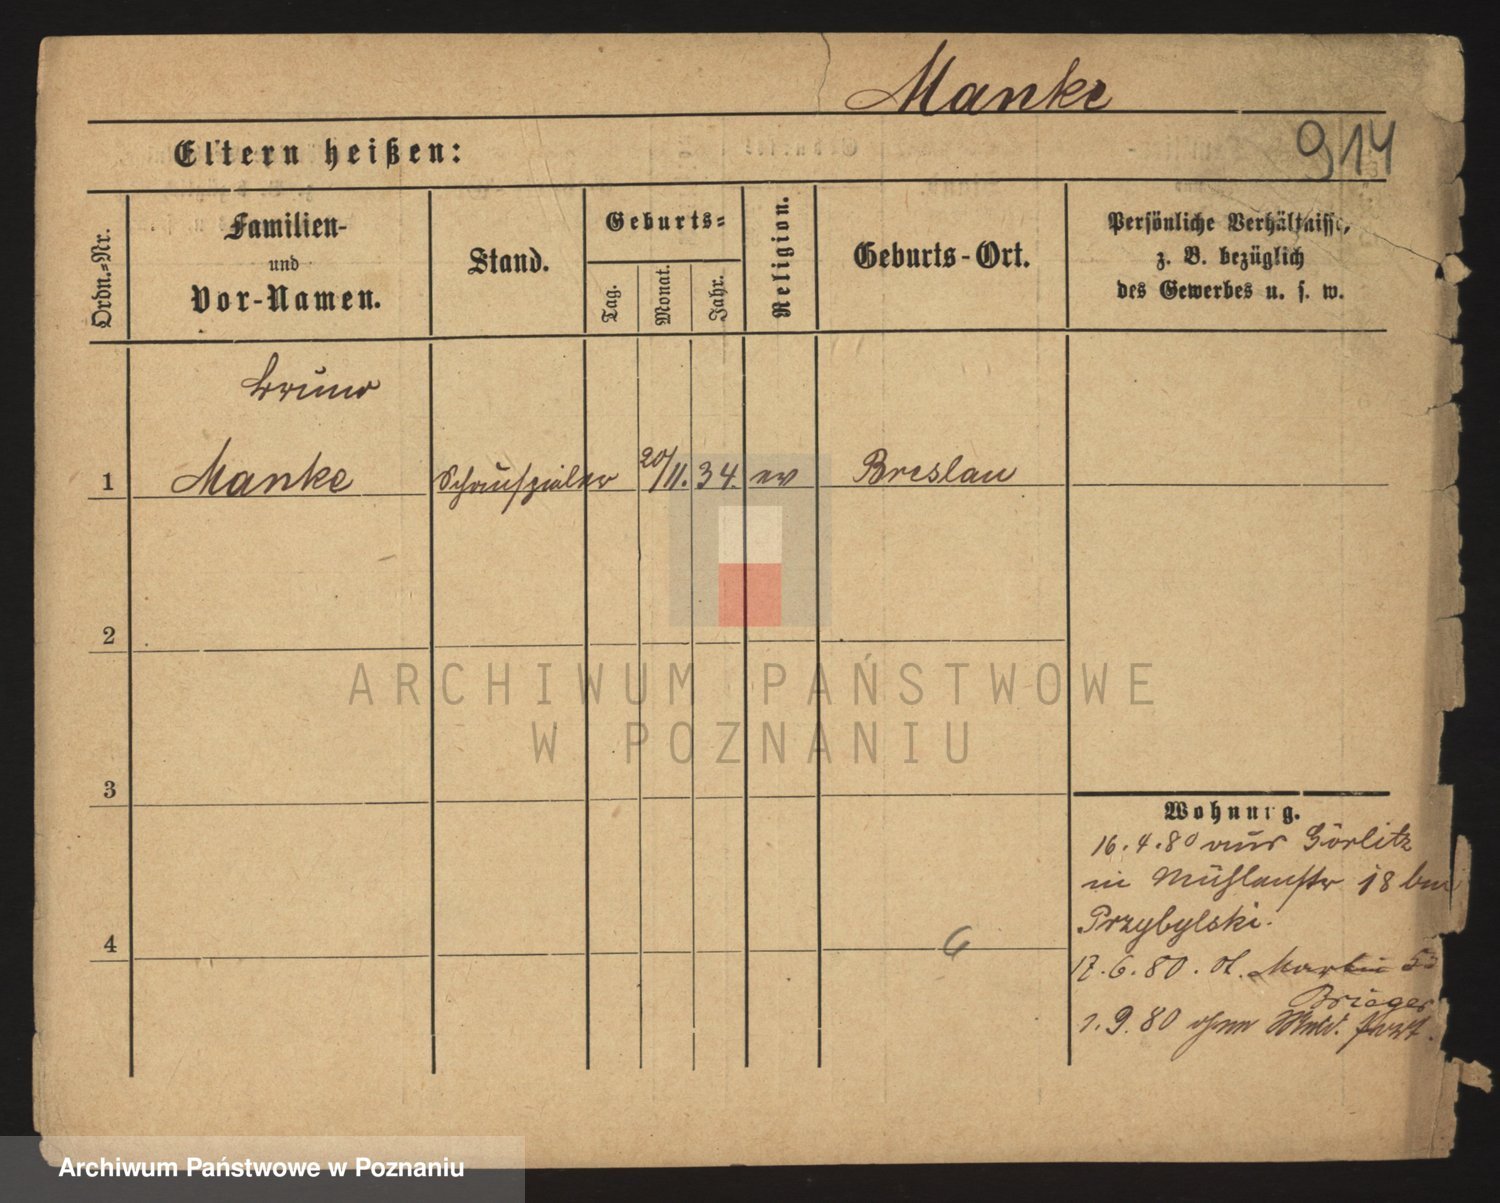 Manke
914
Eltern heißen:
Ordn.-Nr.
Familien-
und
Vor-Namen.
Stand.
Geburts-
Tag.
Monat.
Jahr.
Religion.
Geburts-Ort.
Persönliche Verhältnisse,
z. B. bezüglich
des Gewerbes u. s. w.
Bruno
1 Manke Schauspieler 20/11. 34. ev Breslau
2
3
4
6
Wohnung.
16.4.80 aus Görlitz
in Mühlenstr 18 bei
Przybylski.
17.6.80. St. Martin 53
Brieger
1.9.80 ohne Meld. fort.
ARCHIWUM PAŃSTWOWE
W POZNANIU
Archiwum Państwowe w Poznaniu